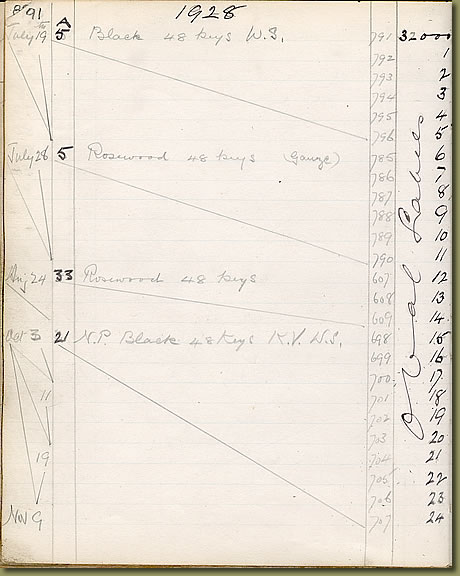 91 1928
A
July 19 5 Black 48 keys W.S. 791 32000
792 1
793 2
794 3
795 4
796 5
July 28 5 Rosewood 48 keys (Gauze) 785 6
786 7
787 8
788 9
789 10
790 11
Aug 24 33 Rosewood 48 keys 607 12
608 13
609 14
Oct 3 21 N.P. Black 48 Keys K.V. W.S. 698 15
699 16
700 17
11 701 18
702 19
703 20
19 704 21
705 22
706 23
Nov 9 707 24
Oval Labels